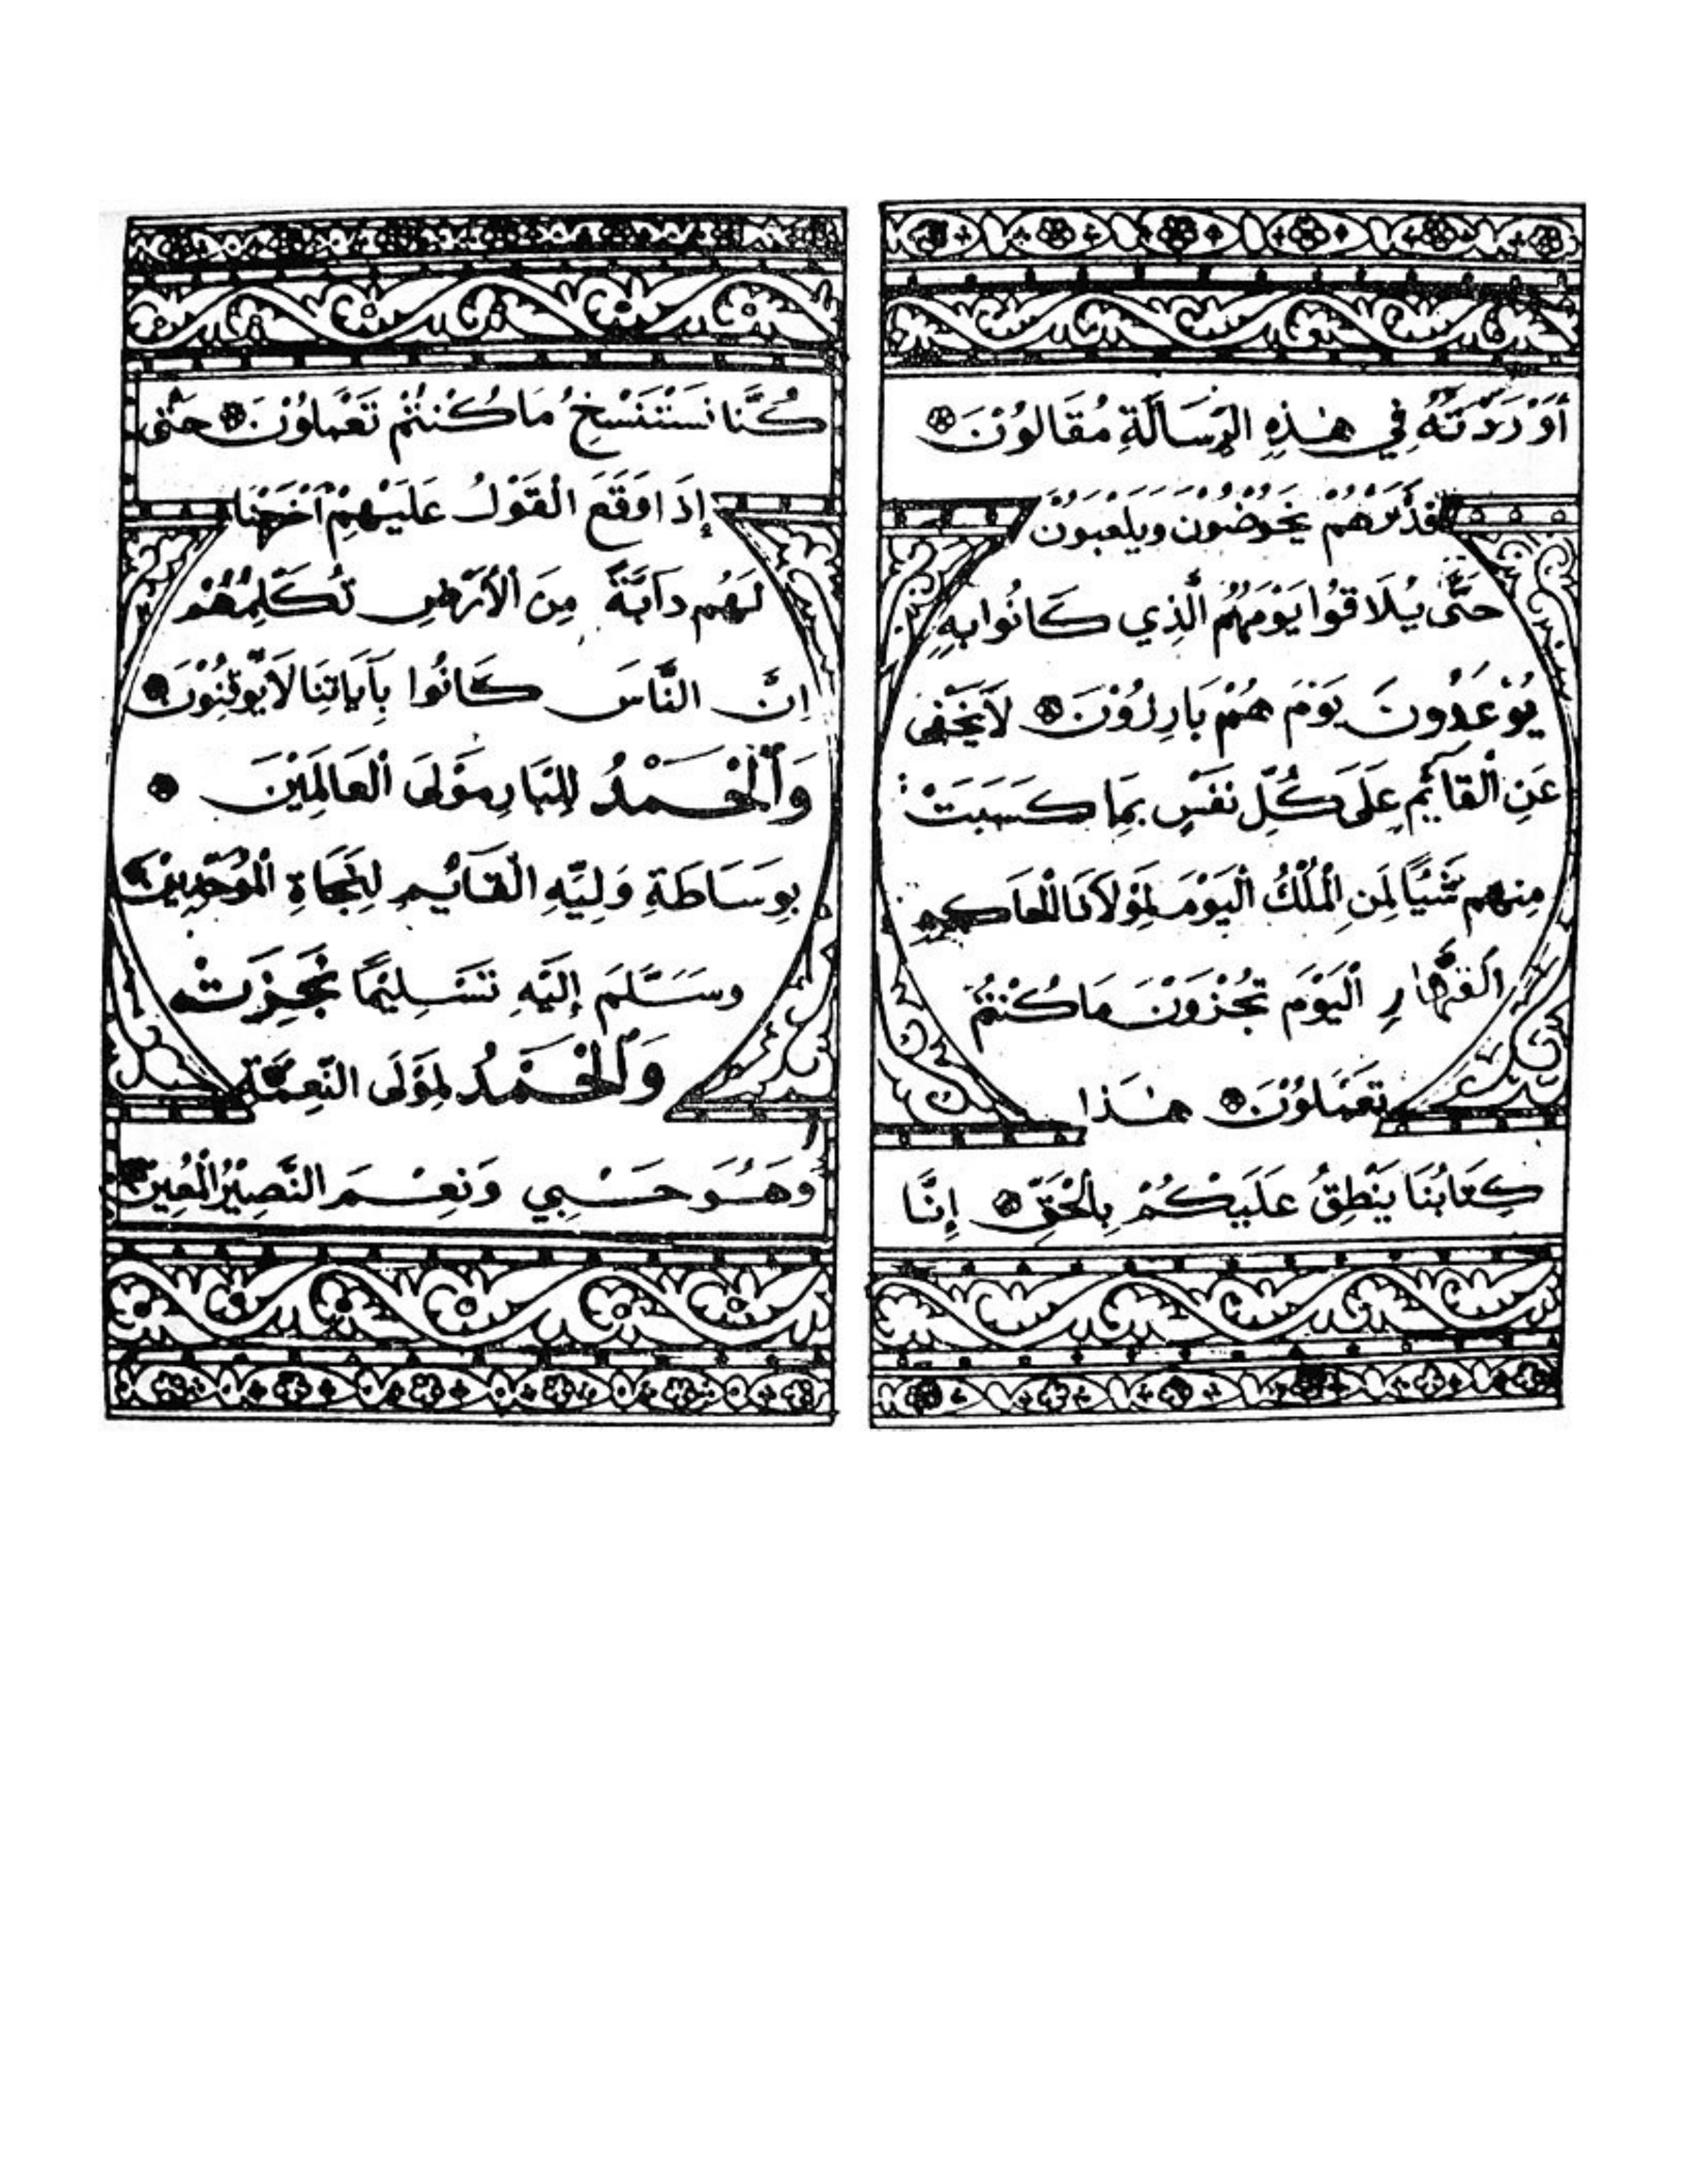 أَوْرَدْتُهُ فِي هٰذِهِ الرِّسَالَةِ مُقَالُوْنَ
فَذَرْهُمْ يَخُوْضُوْنَ وَيَلْعَبُوْنَ
حَتَّى يُلَاقُوا يَوْمَهُمُ الَّذِي كَانُوا بِهِ
يُوْعَدُوْنَ يَوْمَ هُمْ بَارِزُوْنَ لَا يَخْفَى
عَنِ الْقَائِمِ عَلَى كُلِّ نَفْسٍ بِمَا كَسَبَتْ
مِنْهُمْ شَيْئًا لِمَنِ الْمُلْكُ الْيَوْمَ لِمَوْلَانَا الْحَاكِمِ
الْقَهَّارِ الْيَوْمَ تُجْزَوْنَ مَا كُنْتُمْ
تَعْمَلُوْنَ هٰذَا
كِتَابُنَا يَنْطِقُ عَلَيْكُمْ بِالْحَقِّ إِنَّا
كُنَّا نَسْتَنْسِخُ مَا كُنْتُمْ تَعْمَلُوْنَ حَتَّى
إِذَا وَقَعَ الْقَوْلُ عَلَيْهِمْ أَخْرَجْنَا
لَهُمْ دَآبَّةً مِنَ الْأَرْضِ تُكَلِّمُهُمْ
إِنَّ النَّاسَ كَانُوا بِآيَاتِنَا لَا يُوْقِنُوْنَ
وَالْحَمْدُ لِلْبَارِ مَوْلَى الْعَالَمِيْنَ
بِوَسَاطَةِ وَلِيِّهِ الْقَائِمِ لِنَجَاةِ الْمُوَحِّدِيْنَ
وَسَلَّمَ إِلَيْهِ تَسْلِيْمًا نُجِزَتْ
وَالْحَمْدُ لِمَوْلَى النِّعْمَةِ
وَهُوَ حَسْبِي وَنِعْمَ النَّصِيْرُ الْمُعِيْنُ